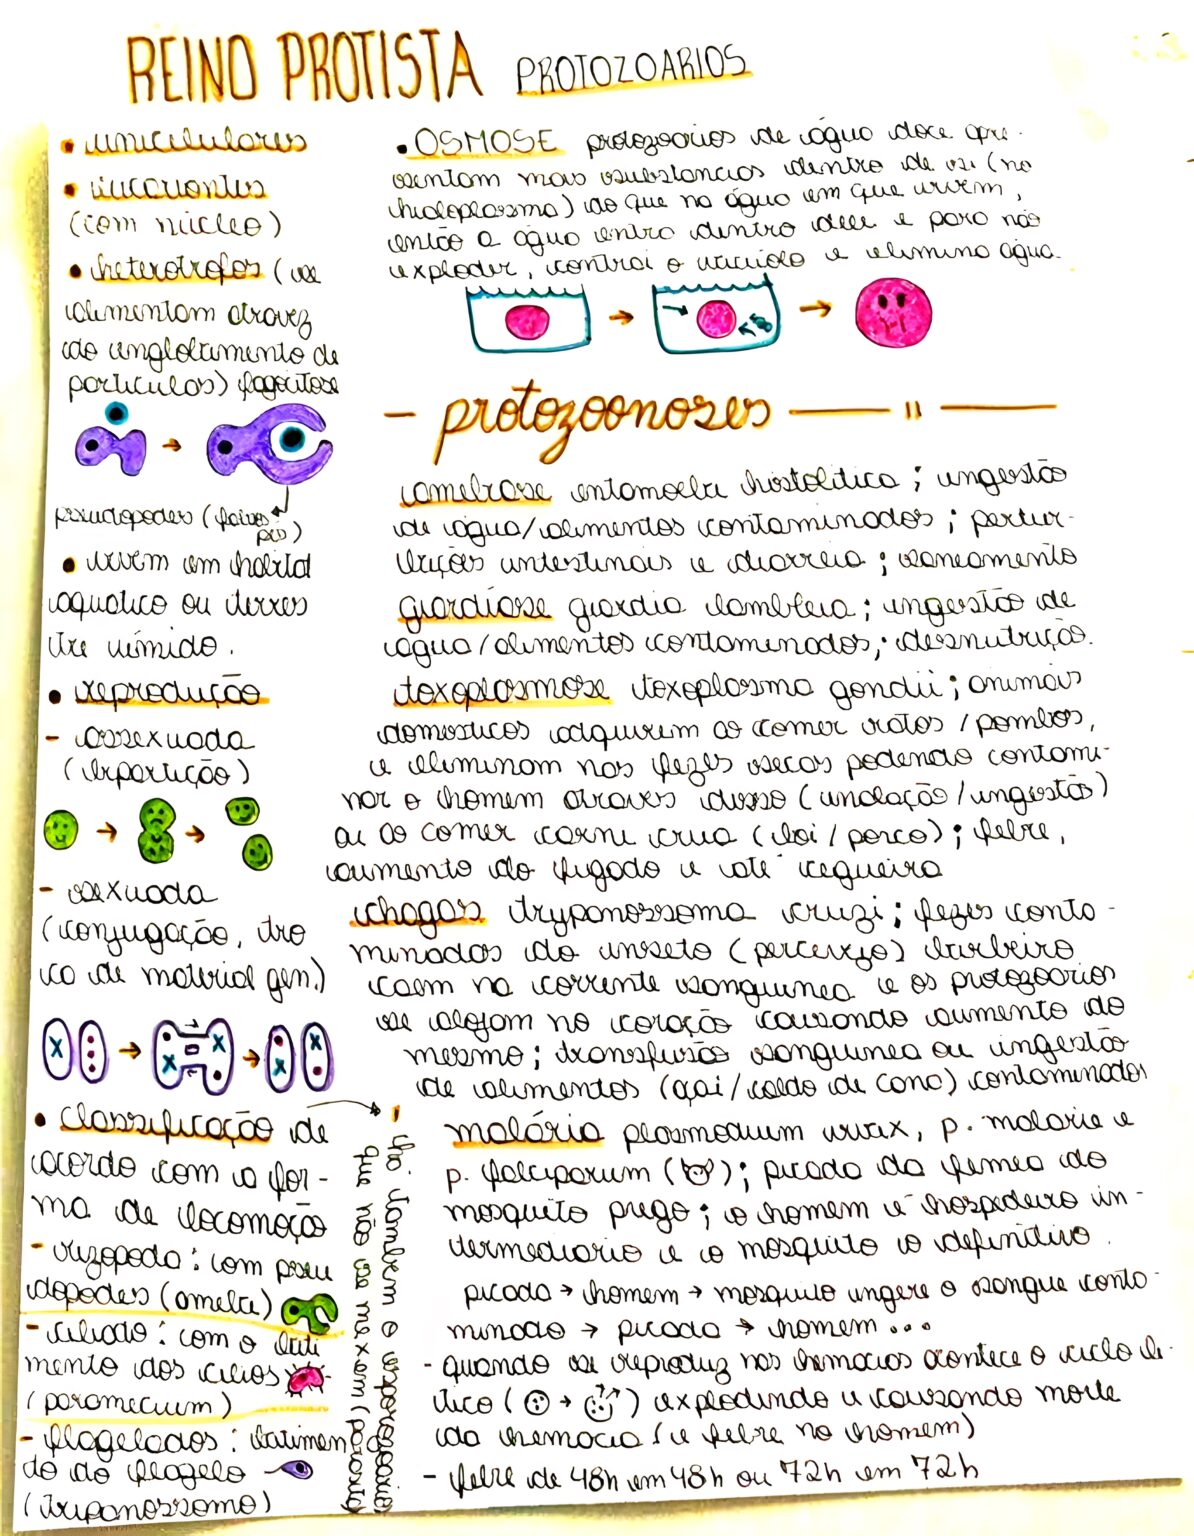 REINO PROTISTA PROTOZOARIOS
• unicelulares
• eucariontes
(com núcleo)
• heterotrofos (se
alimentam atravez
do englobamento de
particulas) fagocitose
pseudopodes (falsos
pés)
• vivem em habitat
aquatico ou terres
tre úmido.
• reprodução
- assexuada
(bipartição)
- sexuada
(conjugação, tro
ca de material gen.)
• classificação de
acordo com a for-
ma de locomoção
- rizopoda: com pseu
dopodes (ameba)
- ciliado: com o bati
mento dos cilios
(paramecium)
- flagelados: batimen
do do flagelo
(tripanossomo)
• há tambem o esporozoario
que não se mexem (parasita)
• OSMOSE protozoarios de água doce apre-
sentam mais substancias dentro de si (no
hialoplasma) do que na água em que vivem,
então a água entra dentro dele e para não
explodir, contrai o vacúolo e elimina água.
- protozoonoses — " —
amebiase entamoeba histolitica; ingestão
de água/alimentos contaminados; pertur-
bações intestinais e diarreia; saneamento
giardiase giardia lambleia; ingestão de
água/alimentos contaminados; desnutrição.
toxoplasmose toxoplasma gondii; animais
domesticos adquirem ao comer ratos/pombos,
e eliminam nas fezes secas podendo contami-
nar o homem atraves disso (inalação/ingestão)
ou ao comer carne crua (boi/porco); febre,
aumento do figado e até cegueira
chagas trypanossoma cruzi; fezes conta-
minadas do inseto (percevejo) barbeiro
caem na corrente sanguinea e os protozoarios
se alojam no coração causando aumento do
mesmo; transfusão sanguinea ou ingestão
de alimentos (açai/caldo de cana) contaminados
malária plasmodium vivax, p. malarie e
p. falciparum ( ); picada da femea do
mosquito prego; o homem é hospedeiro in-
termediario e o mosquito o definitivo.
picada → homem → mosquito ingere o sangue conta-
minado → picada → homem ...
- quando se reproduz nas hemacias acontece o ciclo li-
tico ( → ) explodindo e causando morte
da hemacia (e febre no homem)
- febre de 48h em 48h ou 72h em 72h